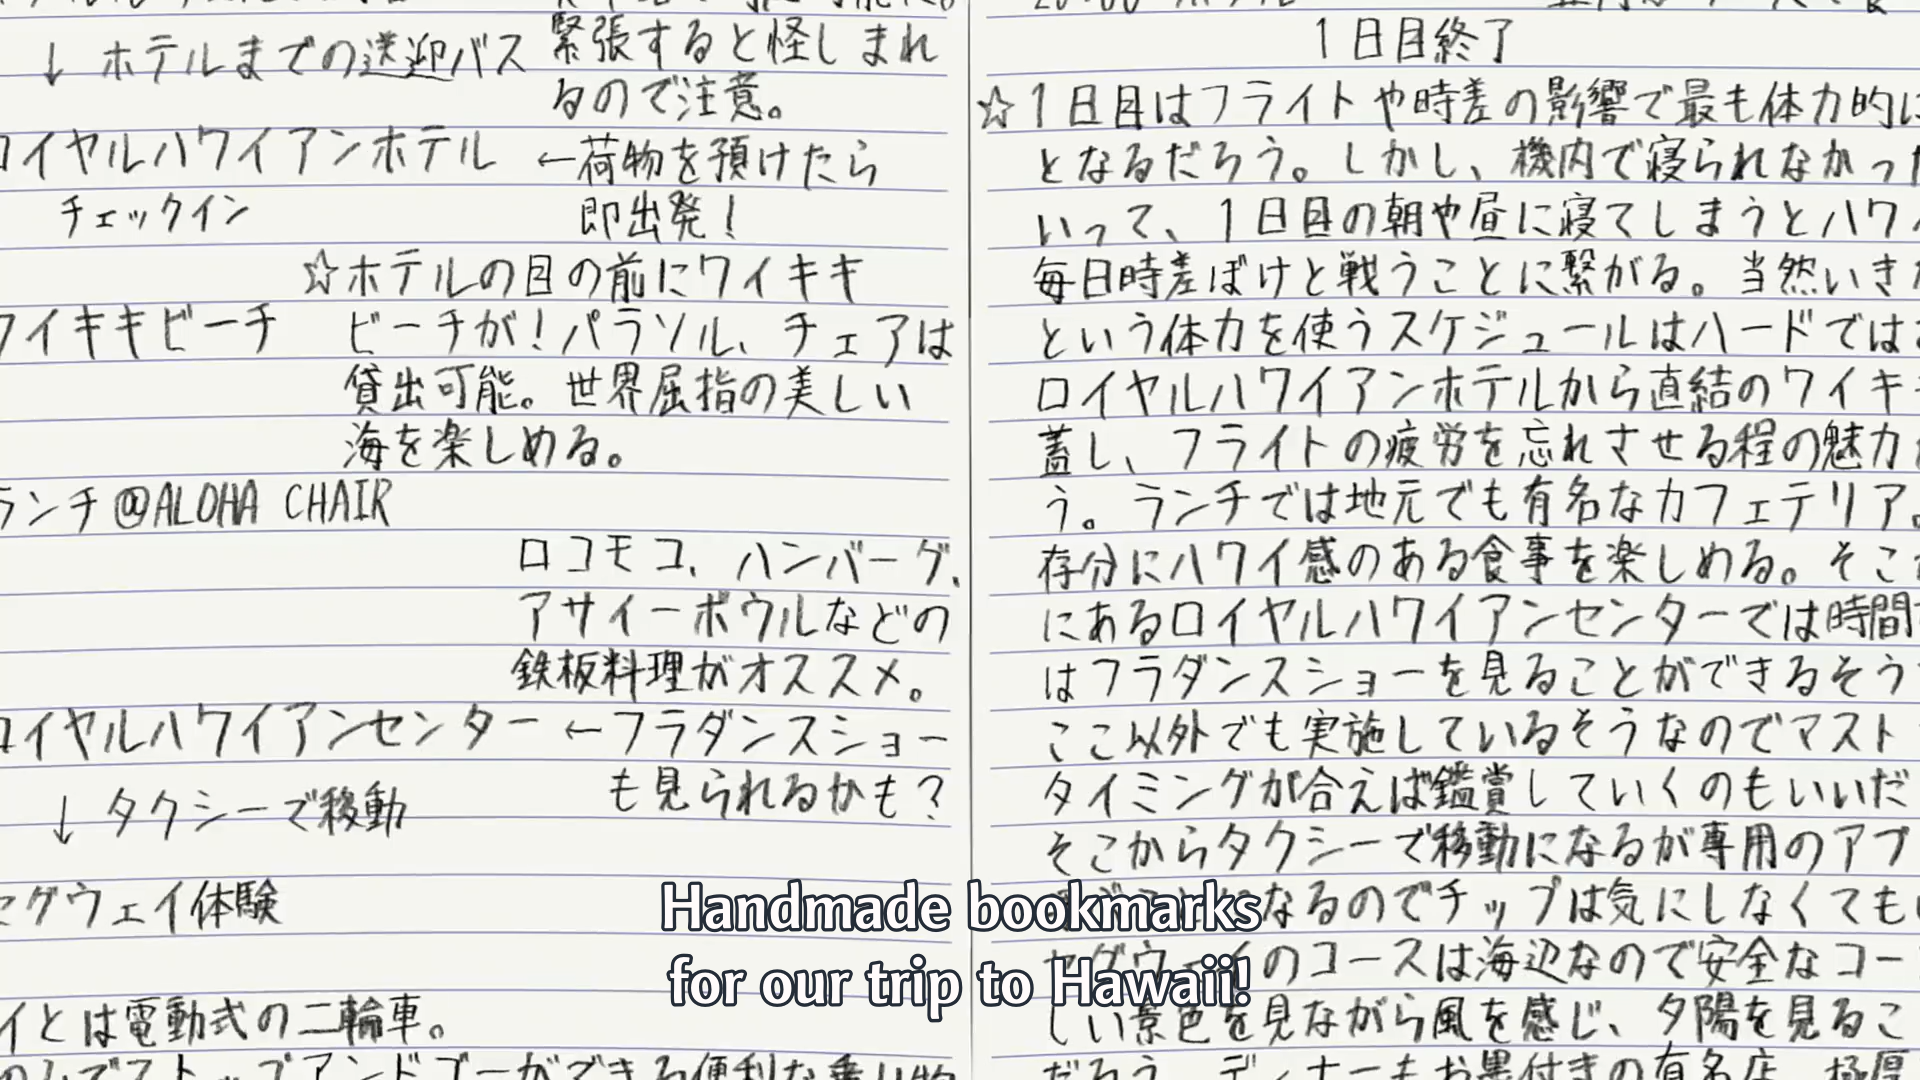 ↓ ホテルまでの送迎バス
緊張すると怪しまれ
るので注意。
ロイヤルハワイアンホテル
←荷物を預けたら
チェックイン
即出発!
☆ホテルの目の前にワイキキ
ワイキキビーチ
ビーチが!パラソル、チェアは
貸出可能。世界屈指の美しい
海を楽しめる。
ランチ@ALOHA CHAIR
ロコモコ、ハンバーグ、
アサイーボウルなどの
鉄板料理がオススメ。
ロイヤルハワイアンセンター
←フラダンスショー
も見られるかも?
↓ タクシーで移動
セグウェイ体験
イとは電動式の二輪車。
1日目終了
☆1日目はフライトや時差の影響で最も体力的に
となるだろう。しかし、機内で寝られなかった
いって、1日目の朝や昼に寝てしまうとハワ
毎日時差ぼけと戦うことに繋がる。当然いき
という体力を使うスケジュールはハードでは
ロイヤルハワイアンホテルから直結のワイキ
蓋し、フライトの疲労を忘れさせる程の魅力
う。ランチでは地元でも有名なカフェテリア。
存分にハワイ感のある食事を楽しめる。そこ
にあるロイヤルハワイアンセンターでは時間
はフラダンスショーを見ることができるそう
ここ以外でも実施しているそうなのでマスト
タイミングが合えば鑑賞していくのもいいだ
そこからタクシーで移動になるが専用のアプ
なるのでチップは気にしなくても
セグウェイのコースは海辺なので安全なコー
しい景色を見ながら風を感じ、夕陽を見るこ
だろう。ディナーもお墨付きの有名店。極厚
Handmade bookmarks
for our trip to Hawaii!